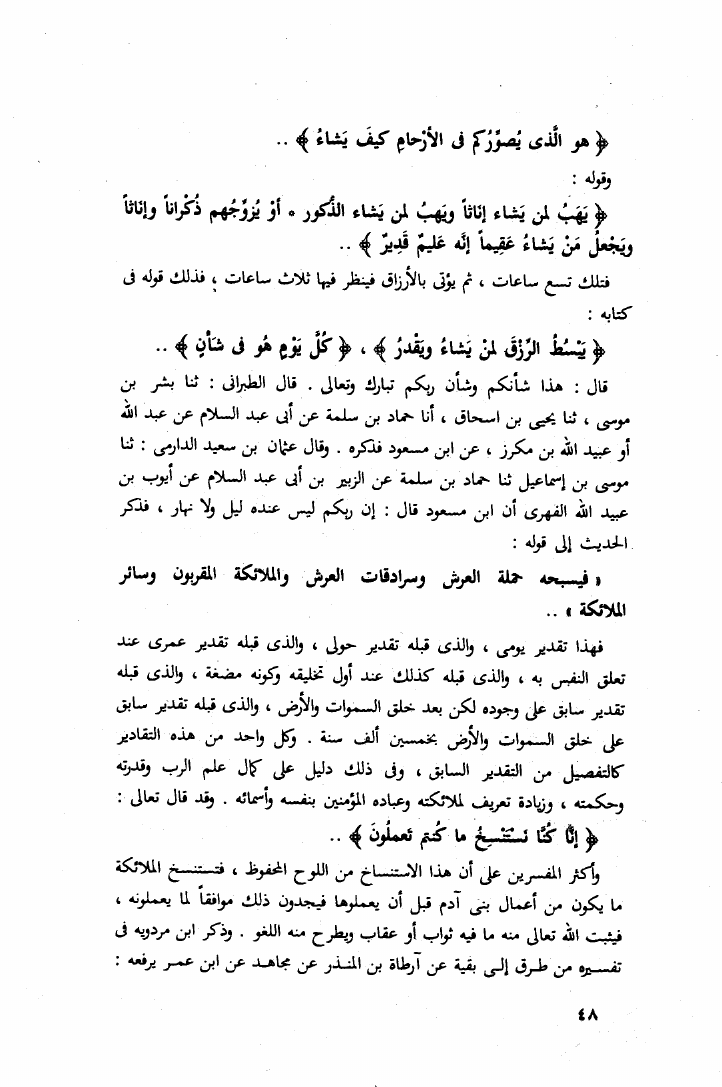 ﴿ هو الَّذى يُصوِّرُكم فى الأرْحامِ كيفَ يَشاءُ ﴾ ..
وقوله :
﴿ يَهَبُ لمن يَشاء إنَاثاً ويَهبُ لمن يَشاء الذُّكور ٠ أوْ يُزوِّجُهم ذُكْراناً وإنَاثاً
ويَجْعلُ مَنْ يَشاءُ عَقِيماً إنَّه عَليمٌ قَدِيرٌ ﴾ ..
فتلك تسع ساعات ، ثم يؤتى بالأرزاق فينظر فيها ثلاث ساعات ، فذلك قوله فى
كتابه :
﴿ يَبْسُطُ الرِّزْقَ لمنْ يَشاءُ ويَقْدرُ ﴾ ، ﴿ كُلَّ يَوْمٍ هُو فى شَأنٍ ﴾ ..
قال : هذا شأنكم وشأن ربكم تبارك وتعالى . قال الطبرانى : ثنا بشر بن
موسى ، ثنا يحيى بن اسحاق ، أنا حماد بن سلمة عن أبى عبد السلام عن عبد الله
أو عبيد الله بن مكرز ، عن ابن مسعود فذكره . وقال عثمان بن سعيد الدارمى : ثنا
موسى بن إسماعيل ثنا حماد بن سلمة عن الزبير بن أبى عبد السلام عن أيوب بن
عبيد الله الفهرى أن ابن مسعود قال : إن ربكم ليس عنده ليل ولا نهار ، فذكر
الحديث إلى قوله :
« فيسبحه حملة العرش وسرادقات العرش والملائكة المقربون وسائر
الملائكة » ..
فهذا تقدير يومى ، والذى قبله تقدير حولى ، والذى قبله تقدير عمرى عند
تعلق النفس به ، والذى قبله كذلك عند أول تخليقه وكونه مضغة ، والذى قبله
تقدير سابق على وجوده لكن بعد خلق السموات والأرض ، والذى قبله تقدير سابق
على خلق السموات والأرض بخمسين ألف سنة . وكل واحد من هذه التقادير
كالتفصيل من التقدير السابق ، وفى ذلك دليل على كمال علم الرب وقدرته
وحكمته ، وزيادة تعريف لملائكته وعباده المؤمنين بنفسه وأسمائه . وقد قال تعالى :
﴿ إنَّا كُنَّا نَسْتَنْسِخُ ما كُنتم تَعملُونَ ﴾ ..
وأكثر المفسرين على أن هذا الاستنساخ من اللوح المحفوظ ، فتستنسخ الملائكة
ما يكون من أعمال بنى آدم قبل أن يعملوها فيجدون ذلك موافقاً لما يعملونه ،
فيثبت الله تعالى منه ما فيه ثواب أو عقاب ويطرح منه اللغو . وذكر ابن مردويه فى
تفسيره من طرق إلى بقية عن آرطاة بن المنذر عن مجاهد عن ابن عمر يرفعه :
٤٨